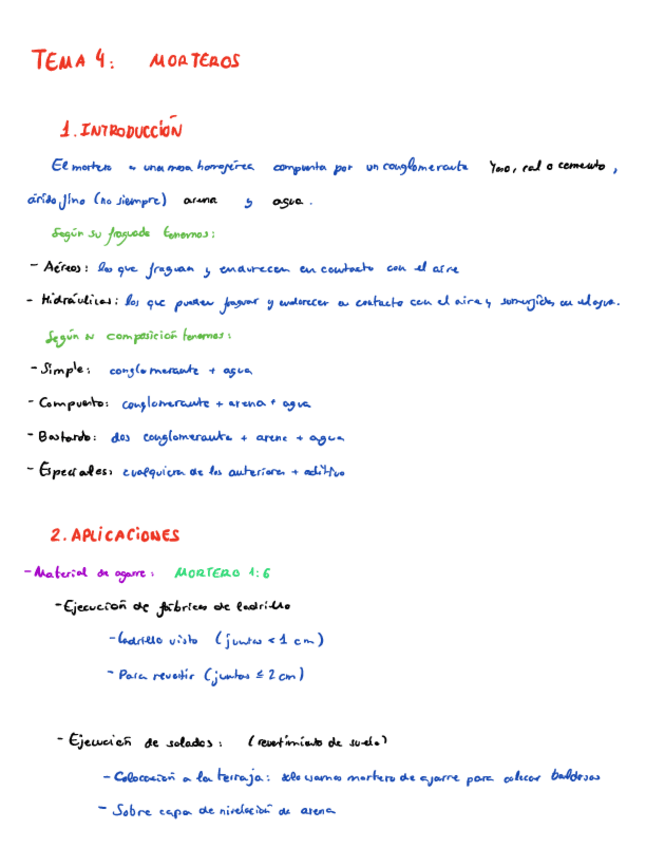 TEMA 4: MORTEROS
1. INTRODUCCIÓN
El mortero es una masa homogénea compuesta por un conglomerante Yeso, cal o cemento,
árido fino (no siempre) arena y agua.
Según su fraguado tenemos:
- Aéreos: los que fraguan y endurecen en contacto con el aire
- Hidráulicos: los que pueden fraguar y endurecer en contacto con el aire y sumergidos en el agua.
Según su composición tenemos:
- Simple: conglomerante + agua
- Compuesto: conglomerante + arena + agua
- Bastardo: dos conglomerante + arena + agua
- Especiales: cualquiera de los anteriores + aditivo
2. APLICACIONES
- Material de agarre: MORTERO 1:6
- Ejecución de fábricas de ladrillo
- Ladrillo visto (juntas < 1 cm)
- Para revestir (juntas ≤ 2 cm)
- Ejecución de solados: (revestimiento de suelo)
- Colocación a la terraja: solo usamos mortero de agarre para colocar baldosas
- Sobre capa de nivelación de arena